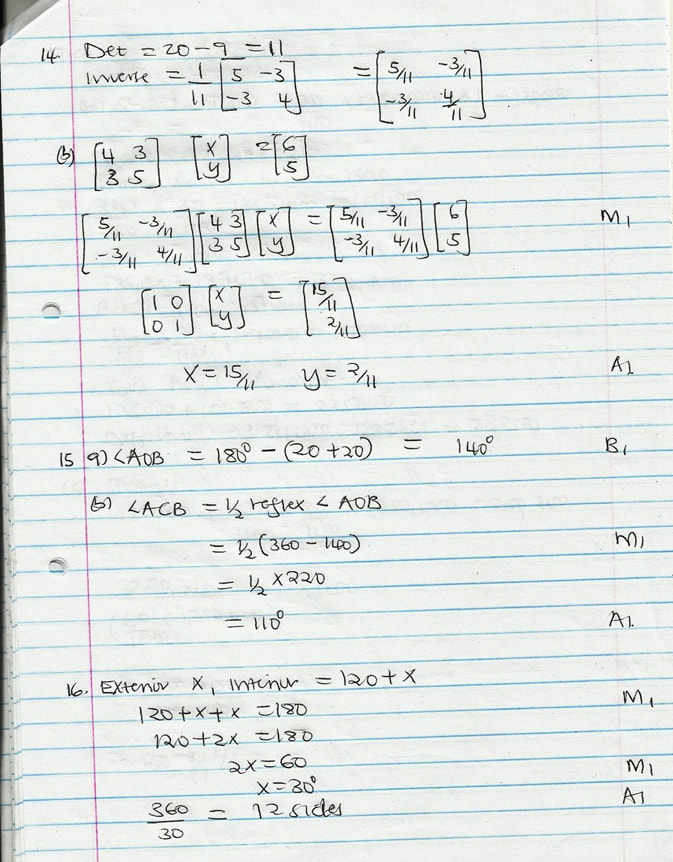 14. Det = 20 - 9 = 11
Inverse = 1/11 [5 -3; -3 4] = [5/11 -3/11; -3/11 4/11]
(b) [4 3; 3 5] [x; y] = [6; 5]
[5/11 -3/11; -3/11 4/11] [4 3; 3 5] [x; y] = [5/11 -3/11; -3/11 4/11] [6; 5] M1
[1 0; 0 1] [x; y] = [15/11; 2/11]
x = 15/11 y = 2/11 A1
15 a) <AOB = 180° - (20 + 20) = 140° B1
(b) <ACB = 1/2 reflex < AOB
= 1/2 (360 - 140) M1
= 1/2 × 220
= 110° A1.
16. Exterior x, interior = 120 + x
120 + x + x = 180 M1
120 + 2x = 180
2x = 60 M1
x = 30°
360/30 = 12 sides A1